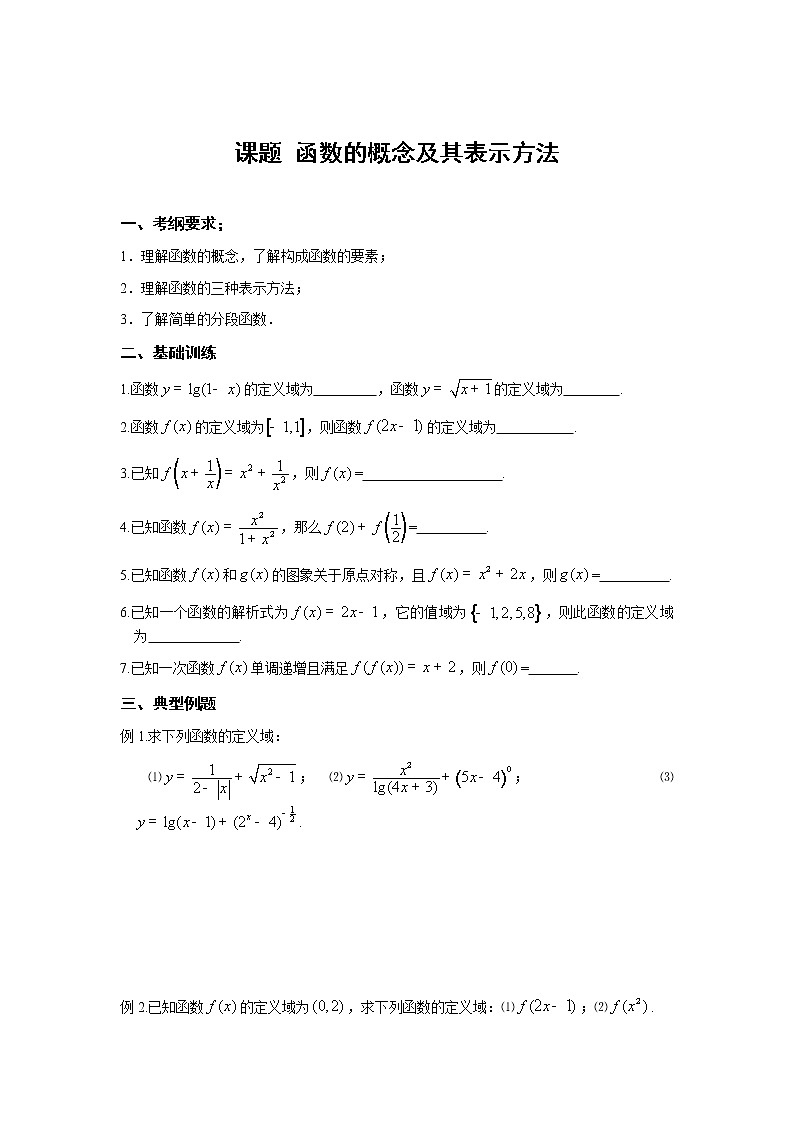 课题 函数的概念及其表示方法
一、考纲要求；
1．理解函数的概念，了解构成函数的要素；
2．理解函数的三种表示方法；
3．了解简单的分段函数．
二、基础训练
1.函数 y = lg(1- x) 的定义域为_________，函数 y = √(x+1) 的定义域为________.
2.函数 f(x) 的定义域为[- 1,1]，则函数 f(2x- 1) 的定义域为___________.
3.已知 f(x + 1/x) = x² + 1/x²，则 f(x) =____________________.
4.已知函数 f(x) = x²/(1+ x²)，那么 f(2) + f(1/2) =__________.
5.已知函数 f(x) 和 g(x) 的图象关于原点对称，且 f(x) = x² + 2x，则 g(x) =__________.
6.已知一个函数的解析式为 f(x) = 2x- 1，它的值域为 {- 1,2,5,8}，则此函数的定义域
为_____________.
7.已知一次函数 f(x) 单调递增且满足 f(f(x)) = x + 2，则 f(0) =_______.
三、典型例题
例 1.求下列函数的定义域：
⑴ y = 1/(2- |x|) + √(x² - 1)； ⑵ y = x²/lg(4x + 3) + (5x- 4)⁰； ⑶
y = lg(x- 1) + (2ˣ - 4)^(-1/2) .
例 2.已知函数 f(x) 的定义域为 (0,2)，求下列函数的定义域：⑴ f(2x- 1)；⑵ f(x²) .